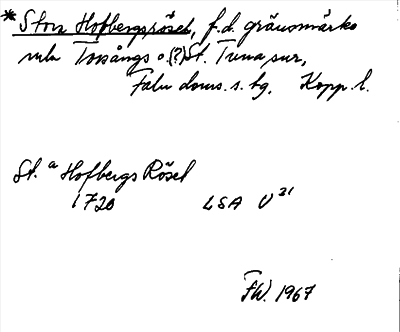 *Stora Hofbergsrösel, f.d. gränsmärke
mln Torsångs o.(?) St. Tuna snr,
Falu doms. s. tg, Kopp. l.
St.a Hofbergs Rösel
1720 LSA U 31
FW. 1967